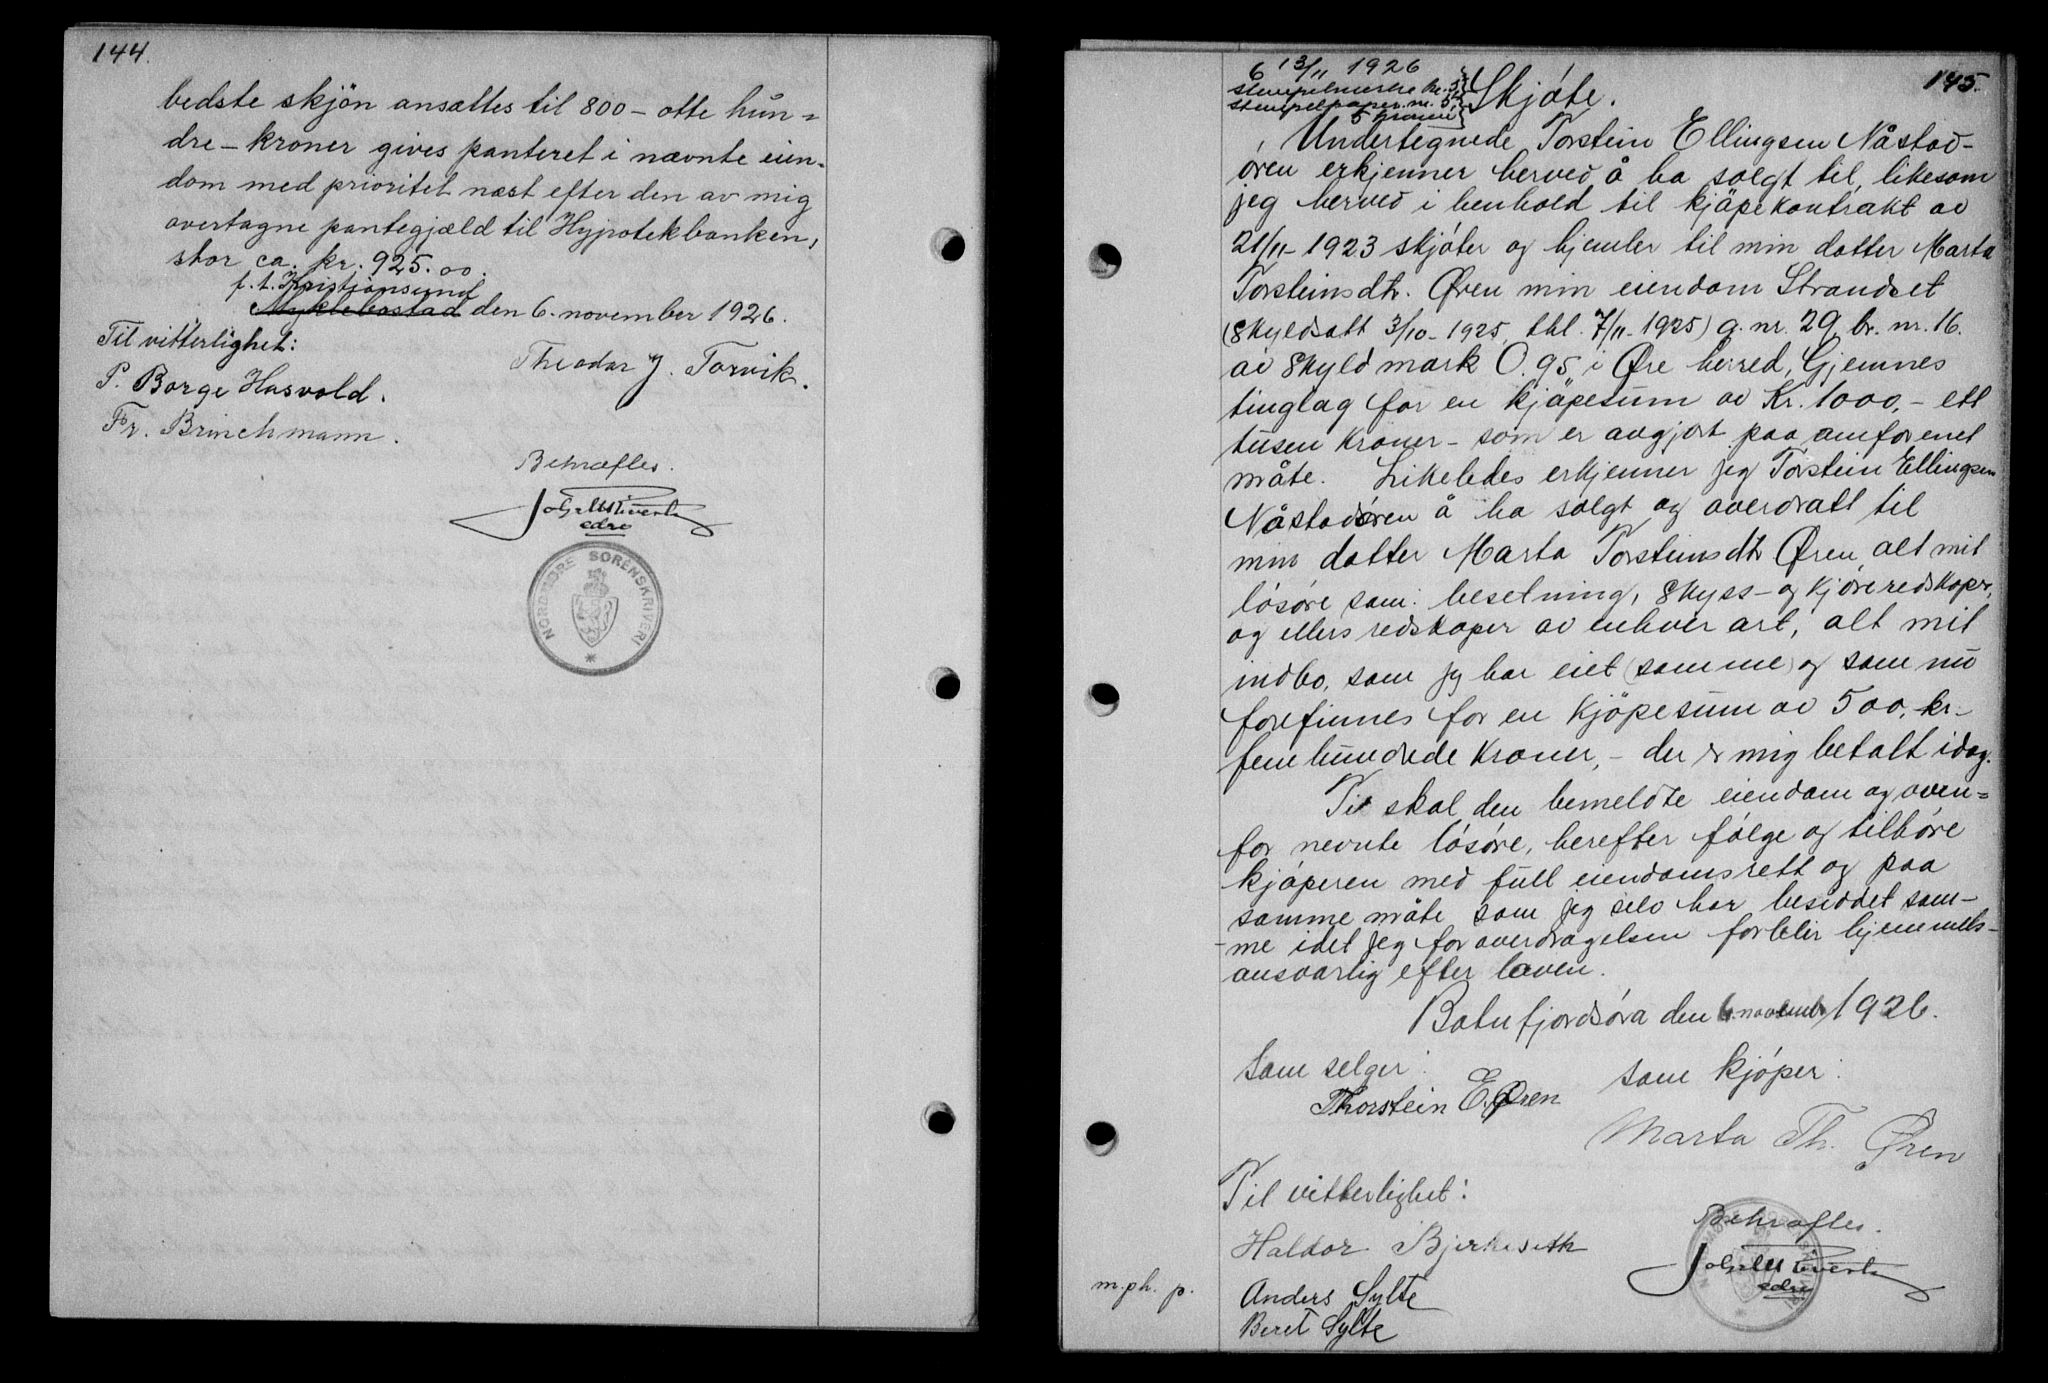 144.
bedste skjön ansættes til 800 – otte hun=
dre – kroner gives panteret i nævnte eien=
dom med prioritet næst efter den av mig
overtagne pantegjæld til Hypotekbanken,
stor ca. kr. 925.00.
p. t. Kristiansund
Myklebostad den 6. november 1926.
Til vitterlighet:
Theodor J. Torvik.
P. Borge Hasvold.
Fr. Brinchmann.
Bekræftes.
edre
NORDMØRE SORENSKRIVERI
145.
6 13/11 1926
stempelmerke kr. 5
stempelpapir nr. 5
5 kroner
Skjøte.
Undertegnede Torstein Ellingsen Nåstad-
øren erkjenner herved å ha solgt til, likesom
jeg herved i henhold til kjøpekontrakt av
21/11 - 1923 skjøter og hjemler til min datter Marta
Torsteinsdtr. Øren min eiendom Strandset
(skyldsatt 3/10 - 1925, thl. 7/11 - 1925) g. nr. 29, br. nr. 16.
av skyldmark 0.95 i Øre herred, Gjemnes
tinglag for en kjøpesum av Kr. 1000,- ett
tusen kroner - som er avgjort paa omforenet
måte. Likeledes erkjenner jeg Torstein Ellingsen
Nåstadøren å ha solgt og overdratt til
min datter Marta Torsteinsdtr Øren, alt mit
løsøre som: besetning, skyss- og kjøreredskaper,
og ellers redskaper av enhver art, alt mit
indbo, som jeg har eiet (samme) og som nu
forefinnes for en kjøpesum av 500, kr-
femhundrede kroner, - der er mig betalt idag.
Ti skal den bemeldte eiendom og oven=
for nevnte løsøre, herefter følge og tilhøre
kjøperen med full eiendomsrett og paa
samme måte som jeg selv har besiddet sam-
-me idet jeg for overdragelsen forblir hjemmels-
ansvarlig efter loven.
Batnfjordsøra den 6. november 1926.
Som selger:
Thorstein E. Øren
som kjøper:
Marta Th. Øren
Til vitterlighet:
Haldor Bjerkeseth
Bekræftes.
m. ph. p.
Anders Sylte
Beret Sylte
edre